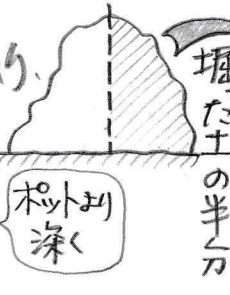 掘った土
の半分
ポットより
深く